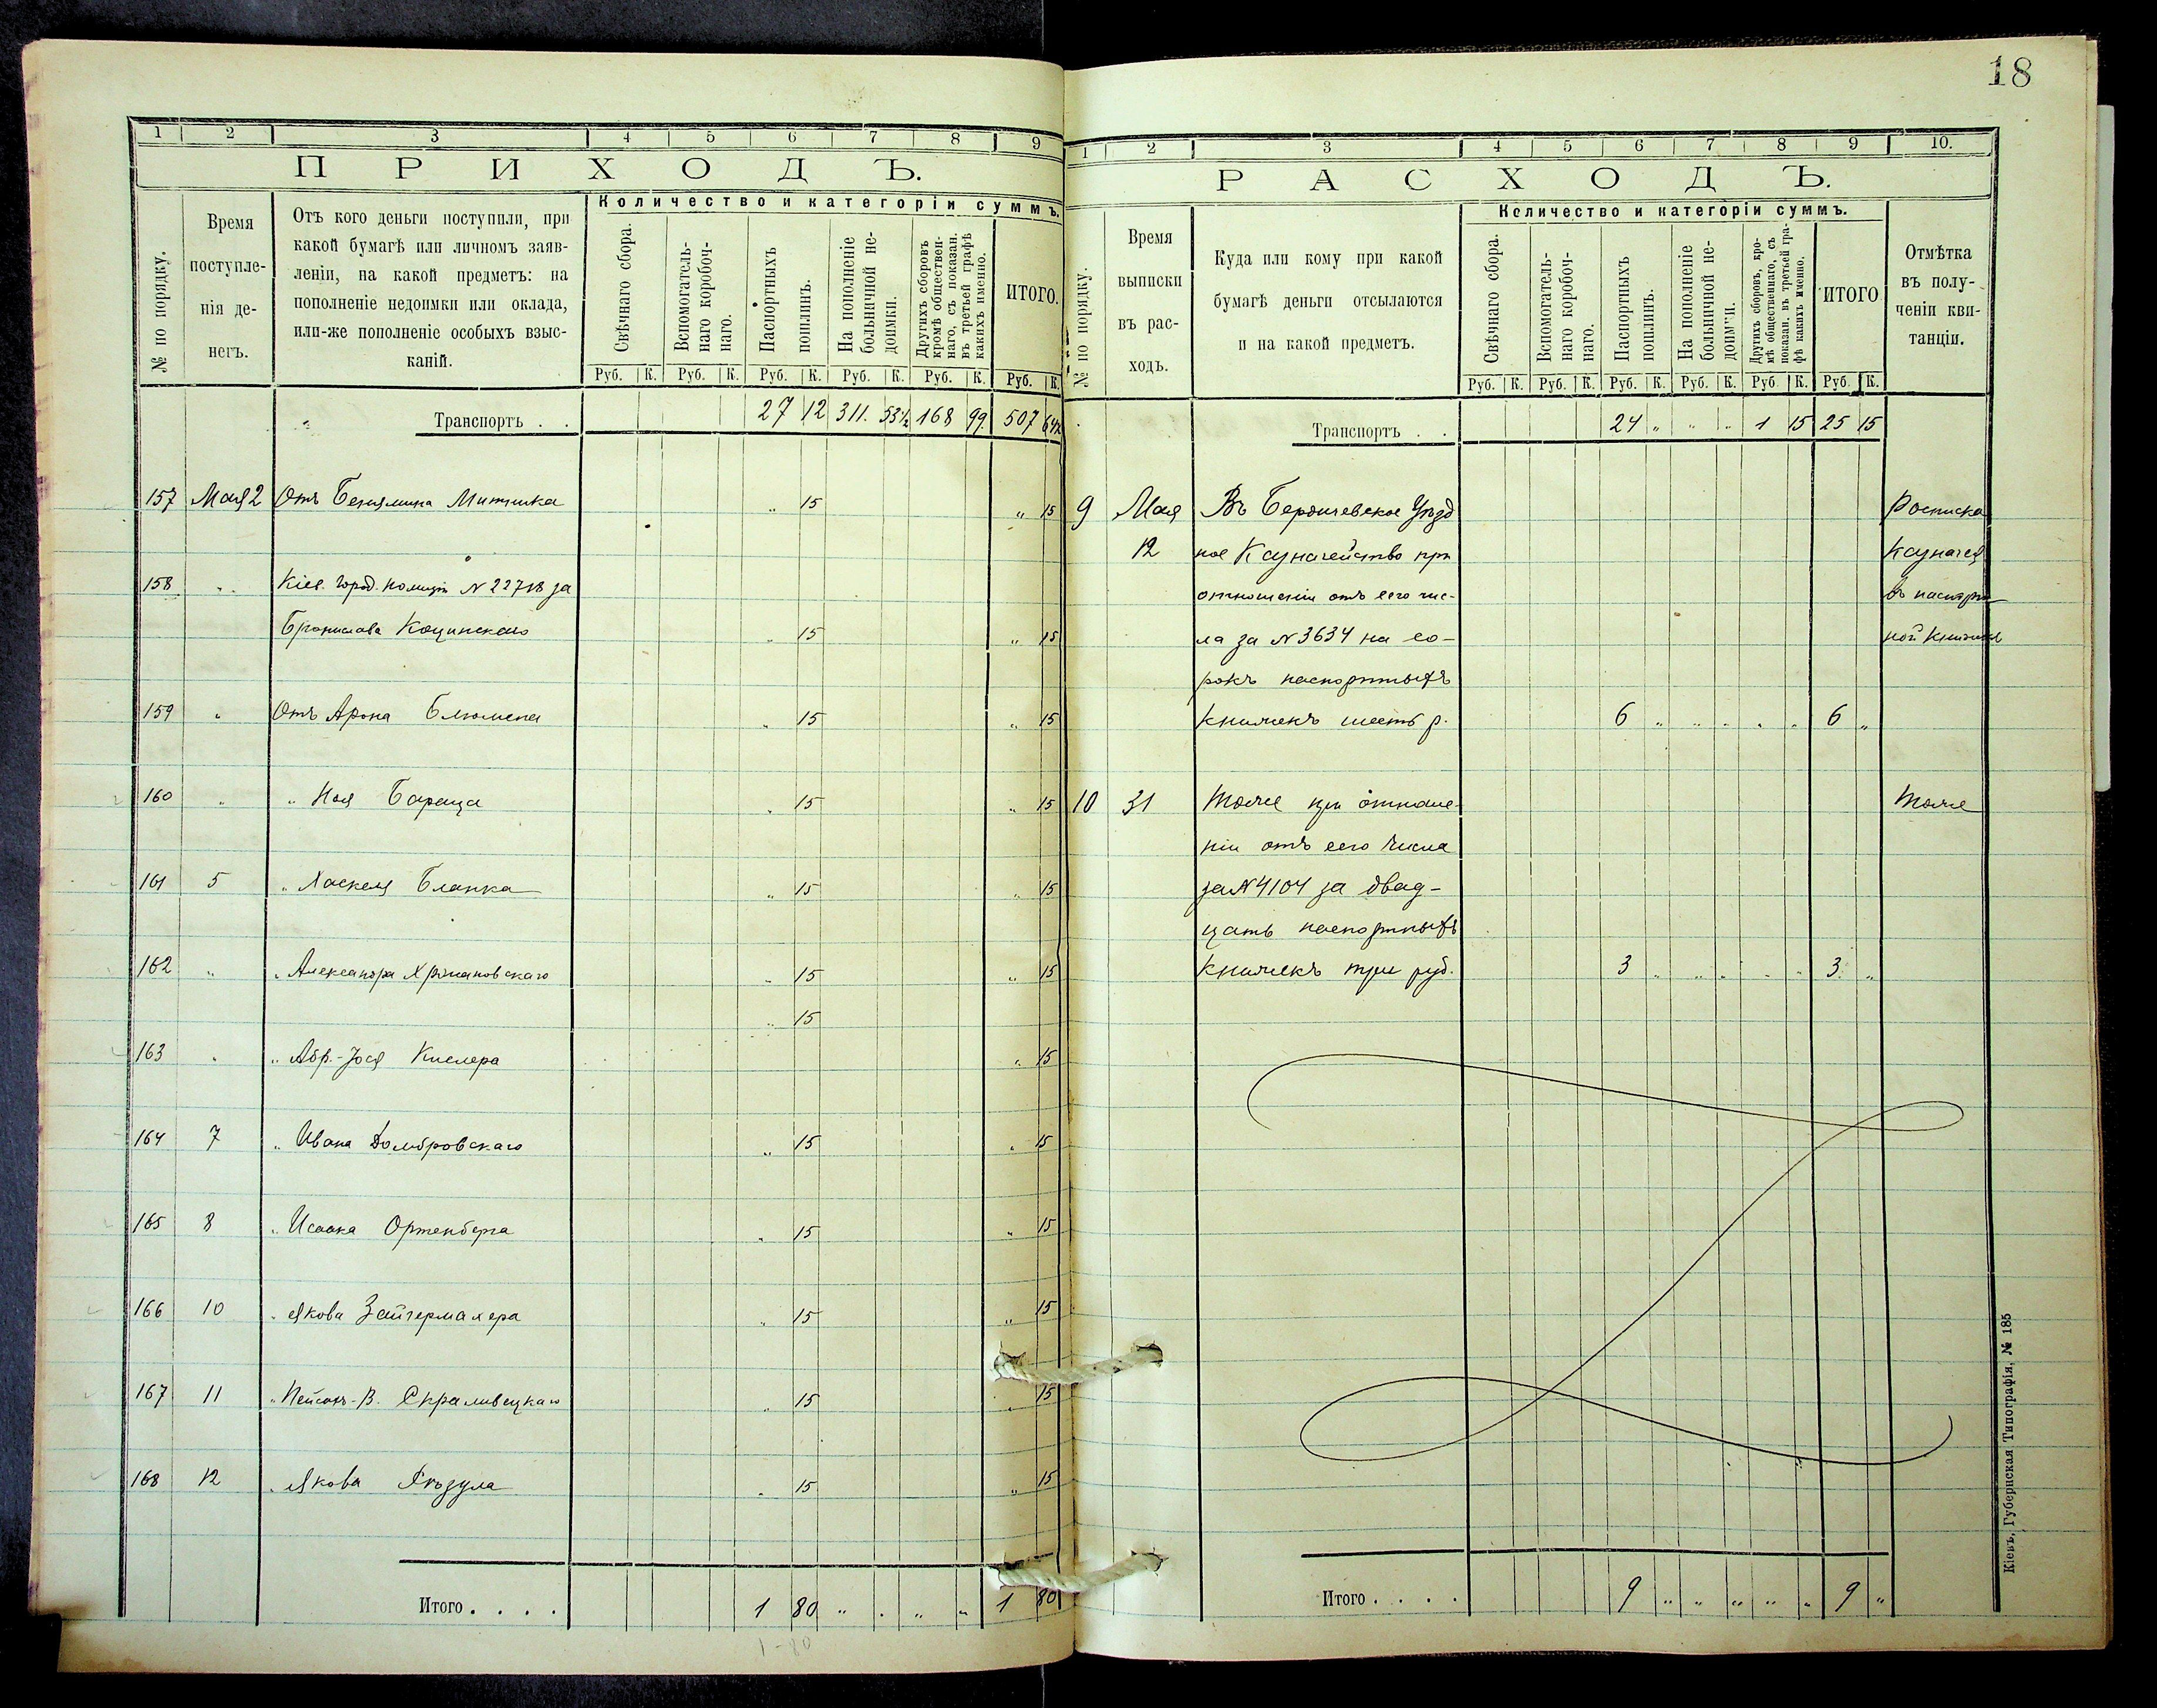 18
1 2 3 4 5 6 7 8 9
ПРИХОДЪ.
№ по порядку.
Время
поступле-
нія де-
негъ.
Отъ кого деньги поступили, при
какой бумагѣ или личномъ заяв-
леніи, на какой предметъ: на
пополненіе недоимки или оклада,
или-же пополненіе особыхъ взыс-
каній.
Количество и категоріи суммъ.
Свѣчнаго сбора.
Вспомогатель-
наго коробоч-
наго.
Паспортныхъ
пошлинъ.
На пополненіе
больничной не-
доимки.
Другихъ сборовъ
кромѣ обществен-
наго, съ показан.
въ третьей графѣ
какихъ именно.
ИТОГО.
Руб. К. Руб. К. Руб. К. Руб. К. Руб. К. Руб. К.
Транспортъ . . 27 12 311. 53½ 168 99. 507 64½
157 Мая 2 Отъ Беніямина Митника " 15 " 15
158 " " Кіев. город. полиціи № 22718 за
Бронислава Коцинскаго " 15 " 15
159 " Отъ Арона Блюмена " 15 " 15
160 " " Ноя Бараца " 15 " 15
161 5 " Хаскеля Бланка " 15 " 15
162 " " Александра " 15 " 15
" 15
163 " " Абр.-Іося Кислера " 15
164 7 " Ивана Домбровскаго " 15 " 15
165 8 " Исаака Ортенберга " 15 " 15
166 10 " Якова Зайчермахера " 15 " 15
167 11 " Пейсах-В. " 15 " 15
168 12 " Якова " 15 " 15
Итого . . . . 1 80 " " " " 1 80
1-80
1 2 3 4 5 6 7 8 9 10.
РАСХОДЪ.
№ по порядку.
Время
выписки
въ рас-
ходъ.
Куда или кому при какой
бумагѣ деньги отсылаются
и на какой предметъ.
Количество и категоріи суммъ.
Свѣчнаго сбора.
Вспомогатель-
наго коробоч-
наго.
Паспортныхъ
пошлинъ.
На пополненіе
больничной не-
доимки.
Другихъ сборовъ, кро-
мѣ общественнаго, съ
показан. въ третьей гра-
фѣ какихъ именно.
ИТОГО
Отмѣтка
въ полу-
ченіи кви-
танціи.
Руб. К. Руб. К. Руб. К. Руб. К. Руб. К. Руб. К.
Транспортъ . . 24 " " " 1 15 25 15
9 Мая Въ Бердичевское Уѣзд Росписка
12 ное Казначейство при Казначея
отношеніи отъ сего чис- въ паспорт
ла за № 3634 на со- ной книжкѣ
рокъ паспортныхъ
книжекъ шесть р. 6 " " " " " 6 "
10 31 Тоже при отноше- Тоже
ніи отъ сего числа
за № 4104 за двад-
цать паспортныхъ
книжекъ три руб. 3 " " " " " 3 "
Итого . . . . 9 " " " " " 9 "
Кіевъ, Губернская Типографія, № 185